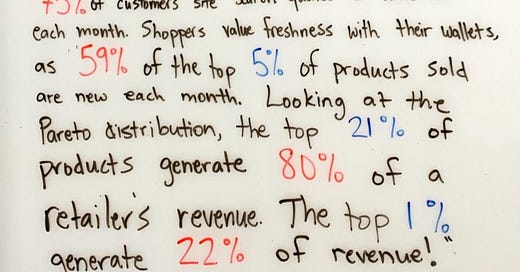 75% of customers site search
each month. Shoppers value freshness with their wallets,
as "59% of the top 5% of products sold
are new each month. Looking at the
Pareto distribution, the top 21% of
products generate 80% of a
retailer's revenue. The top 1%
generate 22% of revenue!"